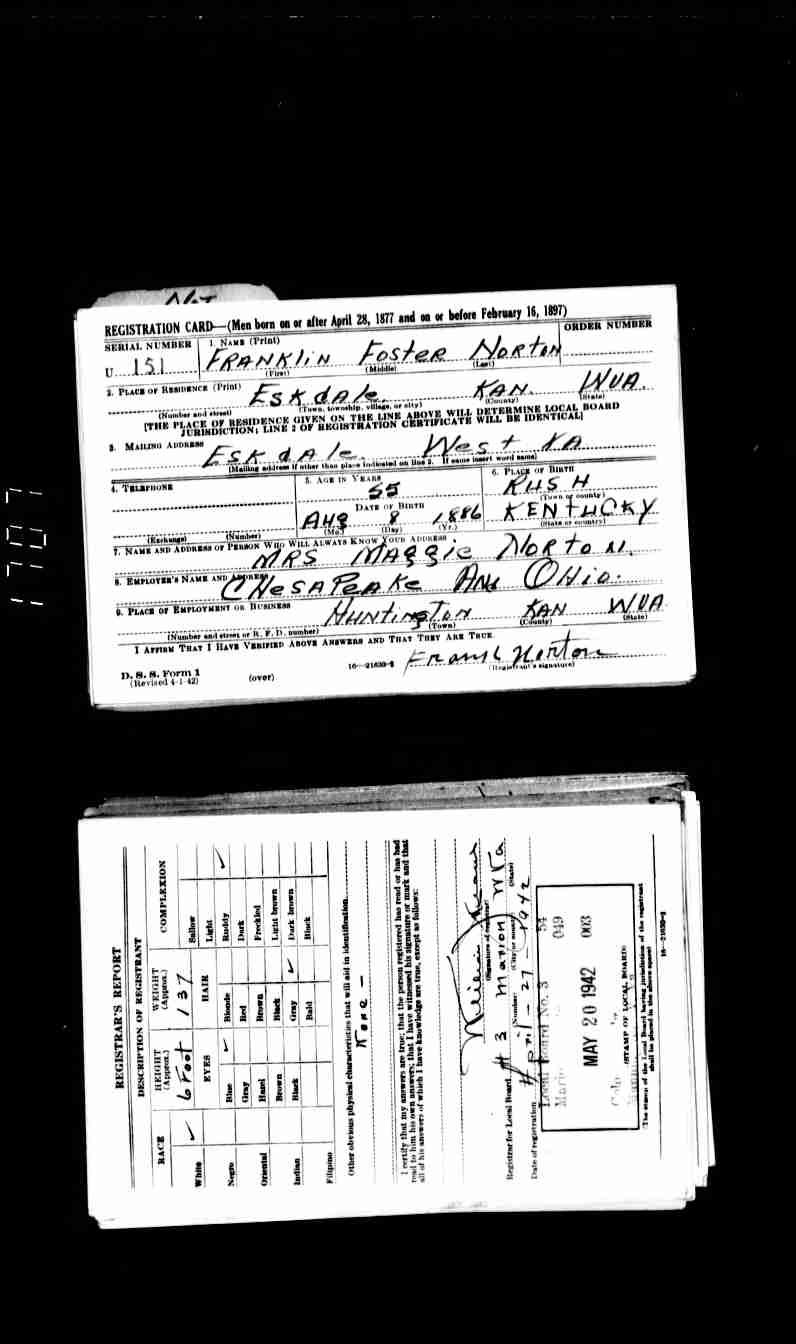 Not
REGISTRATION CARD—(Men born on or after April 28, 1877 and on or before February 16, 1897)
SERIAL NUMBER
1. NAME (Print)
ORDER NUMBER
U 151
FRANKliN Foster NortoN
(First) (Middle) (Last)
2. PLACE OF RESIDENCE (Print)
EskdAle. KAN. WVA.
(Number and street) (Town, township, village, or city) (County) (State)
[THE PLACE OF RESIDENCE GIVEN ON THE LINE ABOVE WILL DETERMINE LOCAL BOARD
JURISDICTION; LINE 2 OF REGISTRATION CERTIFICATE WILL BE IDENTICAL]
3. MAILING ADDRESS
EskdAle. West VA
[Mailing address if other than place indicated on line 2. If same insert word same]
4. TELEPHONE
5. AGE IN YEARS
55
6. PLACE OF BIRTH
RUSH
(Town or county)
DATE OF BIRTH
AUg 8 1886
(Mo.) (Day) (Yr.)
KENTUCKY
(State or country)
(Exchange) (Number)
7. NAME AND ADDRESS OF PERSON WHO WILL ALWAYS KNOW YOUR ADDRESS
MRS MAggie NortoN.
8. EMPLOYER'S NAME AND ADDRESS
CHesAPeAKe ANd OHio.
9. PLACE OF EMPLOYMENT OR BUSINESS
HUNtingtoN KAN WVA
(Number and street or R. F. D. number) (Town) (County) (State)
I AFFIRM THAT I HAVE VERIFIED ABOVE ANSWERS AND THAT THEY ARE TRUE.
Frank Norton
D. S. S. Form 1
(Revised 4-1-42)
(over)
16—21630-2
(Registrant's signature)
REGISTRAR'S REPORT
DESCRIPTION OF REGISTRANT
RACE
HEIGHT (Approx.)
WEIGHT (Approx.)
COMPLEXION
6 Foot
137
EYES
HAIR
White ✓
Negro
Oriental
Indian
Filipino
Blue ✓
Gray
Hazel
Brown
Black
Blonde
Red
Brown
Black
Gray ✓
Bald
Sallow
Light
Ruddy ✓
Dark
Freckled
Light brown
Dark brown
Black
Other obvious physical characteristics that will aid in identification
None -
I certify that my answers are true; that the person registered has read or has had
read to him his own answers; that I have witnessed his signature or mark and that
all of his answers of which I have knowledge are true, except as follows:
(Signature of registrar)
Registrar for Local Board # 3 Marion WVa
(Number) (City or county) (State)
Date of registration April - 27 - 1942
Local Board No. 3 54
049
MAY 20 1942 003
(STAMP OF LOCAL BOARD)
(The stamp of the Local Board having jurisdiction of the registrant
shall be placed in the above space)
16—21630-2